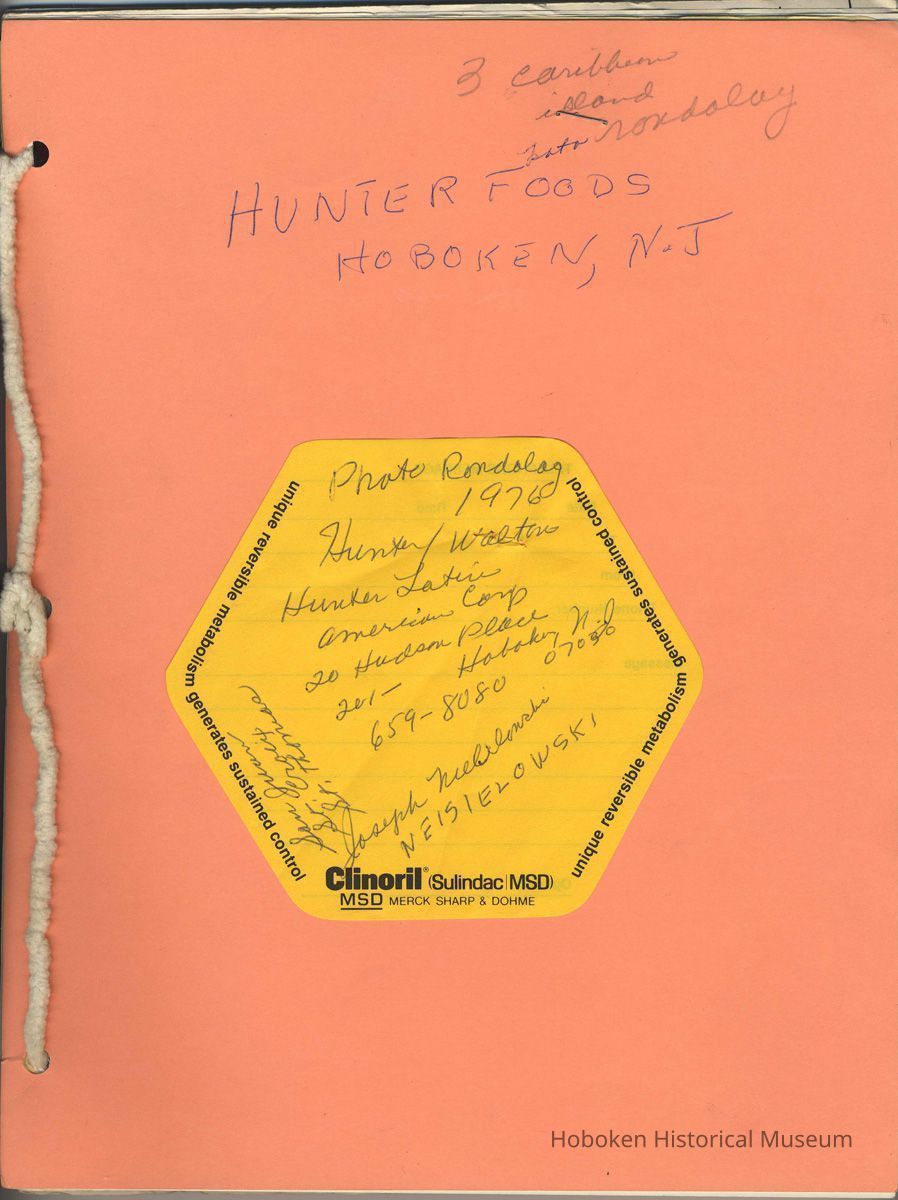 3 caribbean
island
foto rondalay
HUNTER FOODS
HOBOKEN, N.J
Photo Rondalay
1976
Hunter/ Walton
Hunter Latin
american Corp
20 Hudson Place
Hoboken, N.J
07030
201-
659-8080
Joseph
NEISIELOWSKI
San Juan
St. Croix
St. Thomas
unique reversible metabolism
generates sustained control
generates sustained control
unique reversible metabolism
Clinoril® (Sulindac|MSD)
MSD MERCK SHARP & DOHME
Hoboken Historical Museum